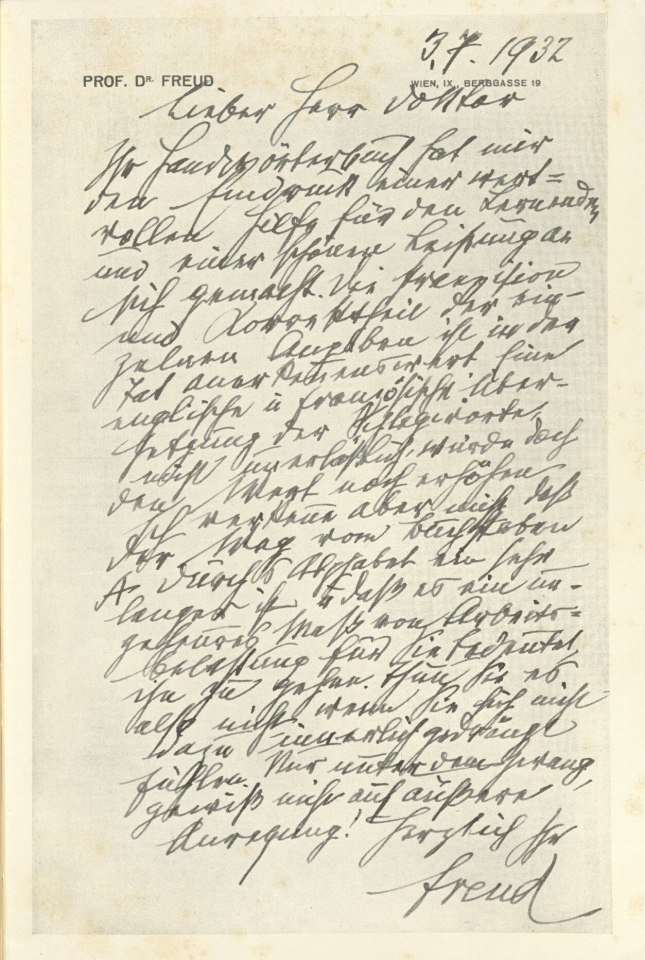 3.7.1932
PROF. DR. FREUD
WIEN, IX., BERGGASSE 19
Lieber Herr Doktor
Ihr Handwörterbuch hat mir
den Eindruck einer wert=
vollen Hilfe für den Lernenden
und einer schönen Leistung an
sich gemacht. Die Präzision
und Korrektheit der ein-
zelnen Angaben ist in der
Tat anerkennenswert. Eine
englische u französische Über-
setzung der Schlagworte,
nicht unerläßlich, würde doch
den Wert noch erhöhen.
Ich verkenne aber nicht, daß
der Weg vom Buchstaben
A durchs Alphabet ein sehr
langer ist u daß es ein un-
geheures Maß von Arbeits=
belastung für Sie bedeutet,
ihn zu gehen. Thun Sie es
also nicht wenn Sie sich nicht
dazu innerlich gedrängt
fühlen. Nur unter dem Zwang,
gewiß nicht auf äußere
Anregung! Herzlich Ihr
Freud